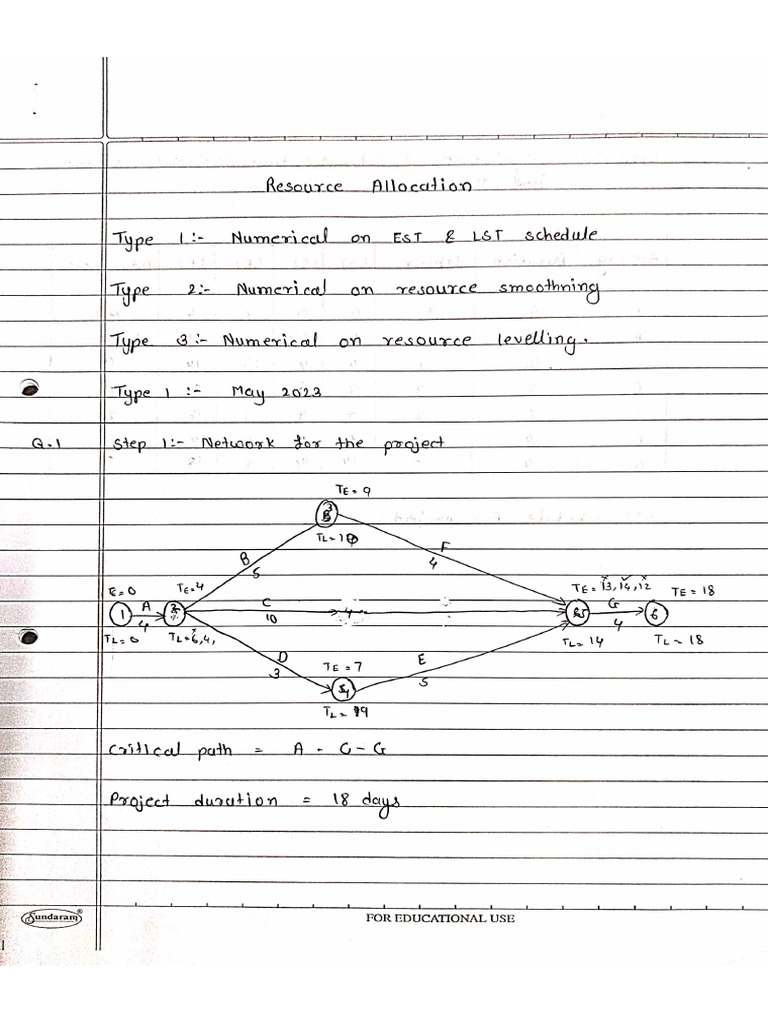 Resource Allocation
Type 1:- Numerical on EST & LST schedule
Type 2:- Numerical on resource smoothning
Type 3:- Numerical on resource levelling.
Type 1:- May 2023
Q.1 Step 1:- Network for the project
TE = 9
3
TL = 10
B
5
F
4
E=0
TE=4
TE = 13, 14, 12
TE = 18
1
A
4
2
C
10
5
G
4
6
TL=0
TL=6,4,
TL=14
TL=18
D
3
TE=7
E
5
4
TL = 9
Critical path = A - C - G
Project duration = 18 days
Sundaram®
FOR EDUCATIONAL USE